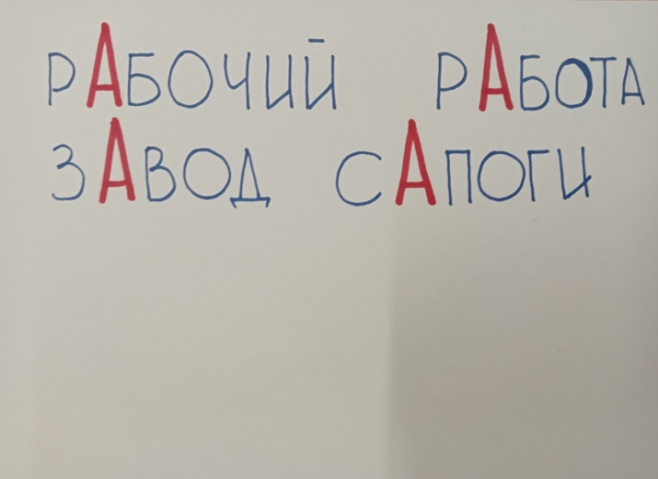 РАБОЧИЙ РАБОТА
ЗАВОД САПОГИ